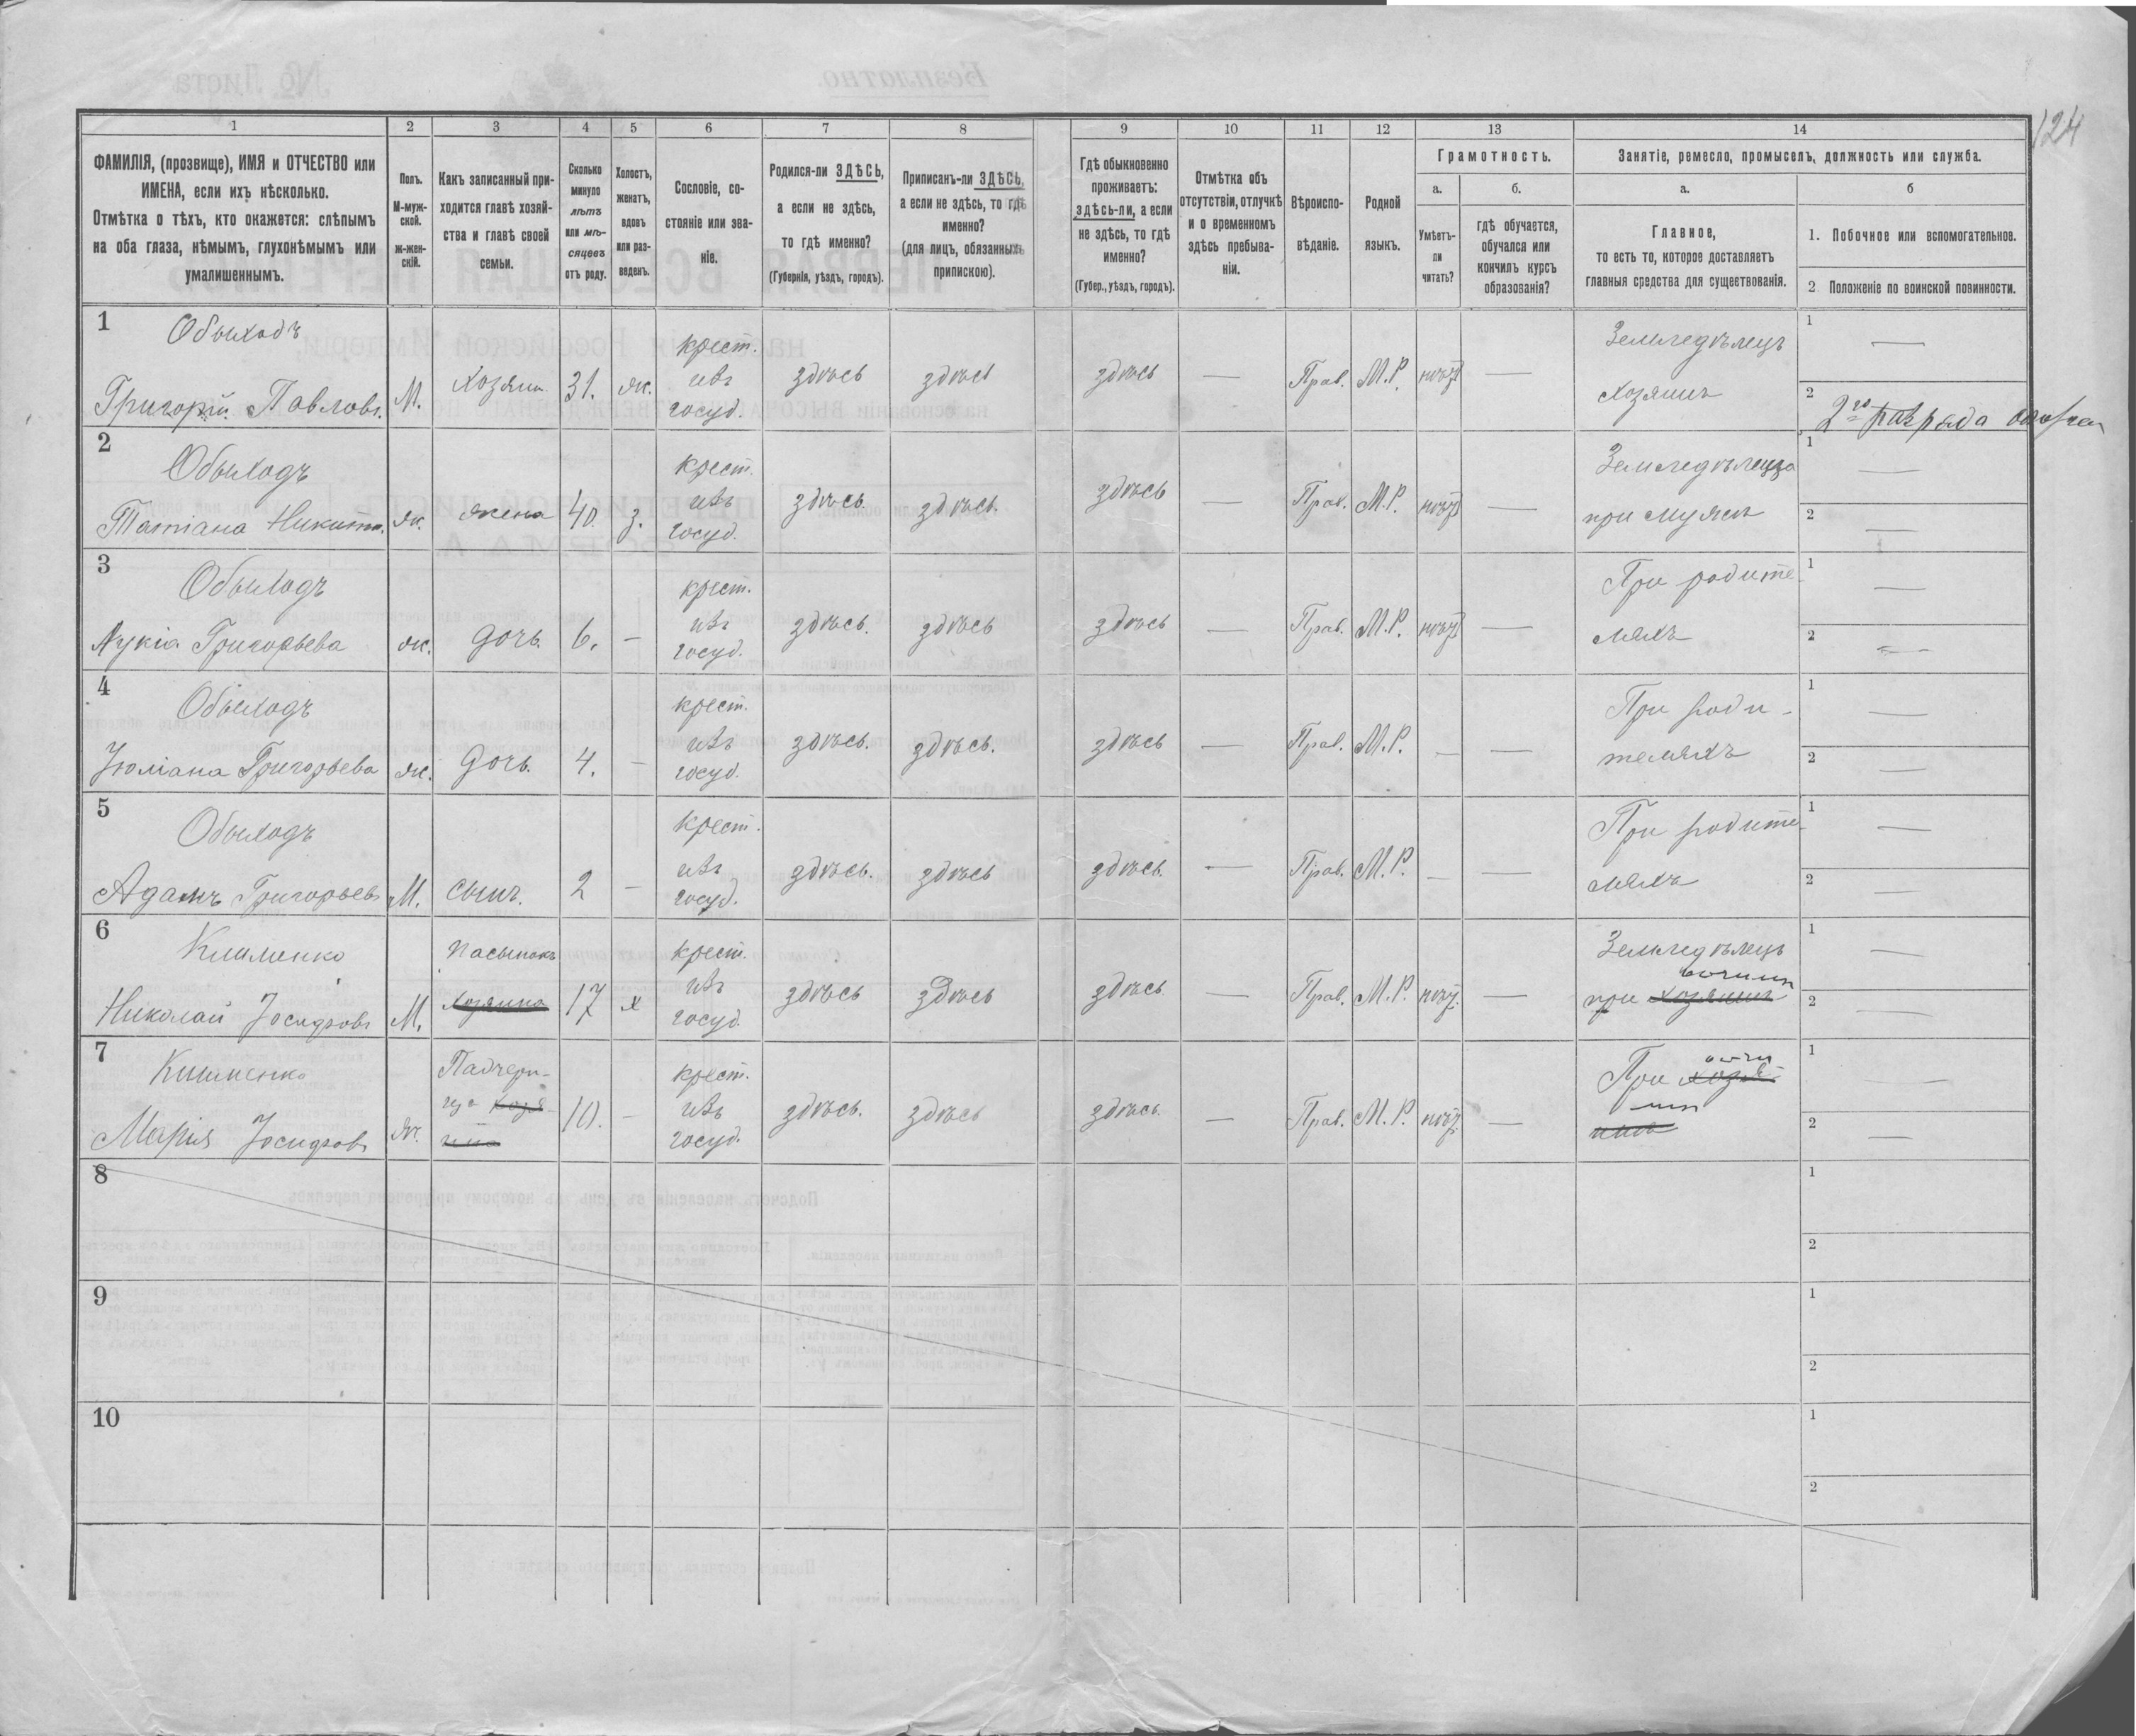 124
1 2 3 4 5 6 7 8 9 10 11 12 13 14
ФАМИЛІЯ, (прозвище), ИМЯ и ОТЧЕСТВО или
ИМЕНА, если ихъ нѣсколько.
Отмѣтка о тѣхъ, кто окажется: слѣпымъ
на оба глаза, нѣмымъ, глухонѣмымъ или
умалишеннымъ.
Полъ.
М-муж-
ской.
ж-жен-
скій.
Какъ записанный при-
ходится главѣ хозяй-
ства и главѣ своей
семьи.
Сколько
минуло
лѣтъ
или мѣ-
сяцевъ
отъ роду.
Холостъ,
женатъ,
вдовъ
или раз-
веденъ.
Сословіе, со-
стояніе или зва-
ніе.
Родился-ли ЗДѢСЬ,
а если не здѣсь,
то гдѣ именно?
(Губернія, уѣздъ, городъ).
Приписанъ-ли ЗДѢСЬ,
а если не здѣсь, то гдѣ
именно?
(для лицъ, обязанныхъ
припискою).
Гдѣ обыкновенно
проживаетъ:
здѣсь-ли, а если
не здѣсь, то гдѣ
именно?
(Губер., уѣздъ, городъ).
Отмѣтка объ
отсутствіи, отлучкѣ
и о временномъ
здѣсь пребыва-
ніи.
Вѣроиспо-
вѣданіе.
Родной
языкъ.
Грамотность.
а.
Умѣетъ-
ли
читать?
б.
гдѣ обучается,
обучался или
кончилъ курсъ
образованія?
Занятіе, ремесло, промыселъ, должность или служба.
а.
Главное,
то есть то, которое доставляетъ
главныя средства для существованія.
б
1. Побочное или вспомогательное.
2 Положеніе по воинской повинности.
1
Обыходъ
Григорій Павловъ.
М.
Хозяинъ
31.
ж.
крест.
изъ
госуд.
здѣсь
здѣсь
здѣсь
—
Прав.
М.Р.
нѣтъ
—
Земледѣлецъ
хозяинъ
1 —
2 2го разряда
2
Обыходъ
Татіана Никитин.
ж.
жена
40.
з.
крест.
изъ
госуд.
здѣсь.
здѣсь.
здѣсь
—
Прав.
М.Р.
нѣтъ
—
Земледѣлецъ
при мужѣ
1 —
2 —
3
Обыходъ
Лукія Григорьева
ж.
дочь.
6.
—
крест.
изъ
госуд.
здѣсь.
здѣсь
здѣсь
—
Прав.
М.Р.
нѣтъ
—
При родите-
ляхъ
1 —
2 —
4
Обыходъ
Іюліана Григорьева
ж.
дочь.
4.
—
крест.
изъ
госуд.
здѣсь.
здѣсь.
здѣсь
—
Прав.
М.Р.
—
—
При роди-
теляхъ
1 —
2 —
5
Обыходъ
Адамъ Григорьевъ
М.
сынъ.
2
—
крест.
изъ
госуд.
здѣсь.
здѣсь
здѣсь.
—
Прав.
М.Р.
—
—
При родите-
ляхъ
1 —
2 —
6
Клименко
Николай Іосифовъ
М.
Пасынокъ
хозяина
17
х
крест.
изъ
госуд.
здѣсь
здѣсь
здѣсь
—
Прав.
М.Р.
нѣт.
—
Земледѣлецъ
при хозяинѣ
1 —
2 —
7
Клименко
Марія Іосифов.
ж.
Падчери-
ца хозя-
ина
10.
—
крест.
изъ
госуд.
здѣсь.
здѣсь
здѣсь.
—
Прав.
М.Р.
нѣт.
—
При хозя-
инѣ
1 —
2 —
8
1
2
9
1
2
10
1
2